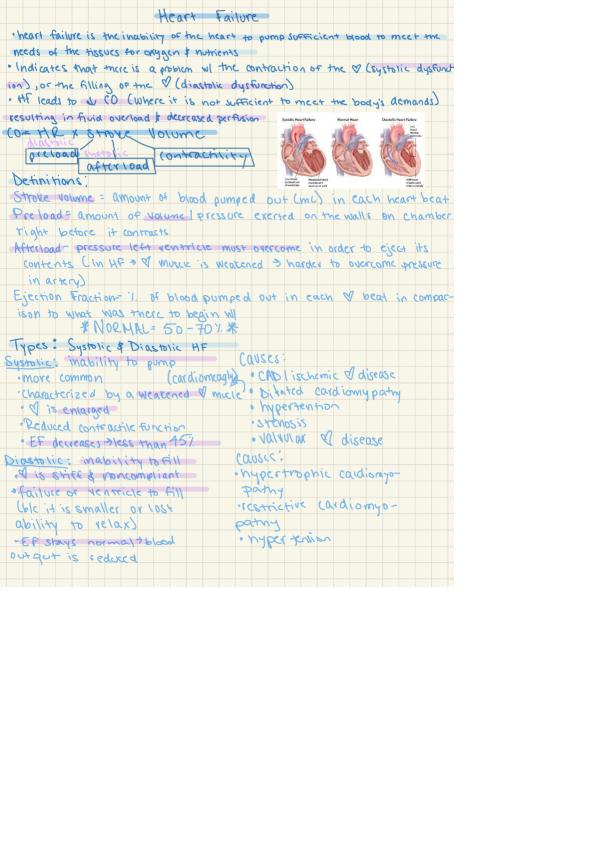 Heart Failure
• heart failure is the inability of the heart to pump sufficient blood to meet the
needs of the tissues for oxygen & nutrients
• Indicates that there is a problem w/ the contraction of the ♡ (systolic dysfunct
ion), or the filling of the ♡ (diastolic dysfunction)
• HF leads to ↓ CO (where it is not sufficient to meet the body's demands)
resulting in fluid overload & decreased perfusion
CO = HR x Stroke Volume
diastolic
preload
afterload
contractility
Systolic Heart Failure Normal Heart Diastolic Heart Failure
Definitions:
Stroke volume = amount of blood pumped out (mL) in each heart beat
Preload = amount of volume/pressure exerted on the walls on chamber
right before it contracts
Afterload - pressure left ventricle must overcome in order to eject its
contents (in HF → ♡ muscle is weakened → harder to overcome pressure
in artery)
Ejection Fraction - % of blood pumped out in each ♡ beat in compar-
ison to what was there to begin w/
* NORMAL = 50-70% *
Types: Systolic & Diastolic HF
Systolic: inability to pump
• more common (cardiomeagly)
• characterized by a weakened ♡ mucle
• ♡ is enlarged
• Reduced contractile function
• EF decreases → less than 45%
Causes:
• CAD/ischemic ♡ disease
• Dilated cardiomypathy
• hypertention
• stenosis
• valvular ♡ disease
Diastolic: inability to fill
• ♡ is stiff & noncompliant
• failure of ventricle to fill
(b/c it is smaller or lost
ability to relax)
- EF stays normal → blood
output is reduced
causes:
• hypertrophic cardiomyo-
pathy
• restrictive cardiomyo-
pathy
• hypertension